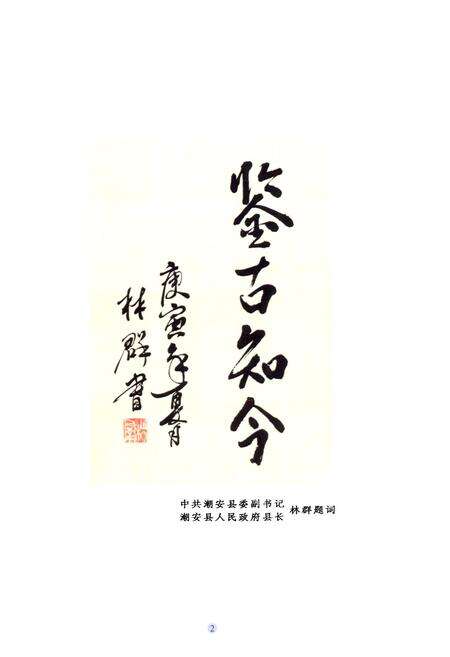 鉴古知今
庚寅年夏月
林群書
中共潮安县委副书记
潮安县人民政府县长 林群题词
2